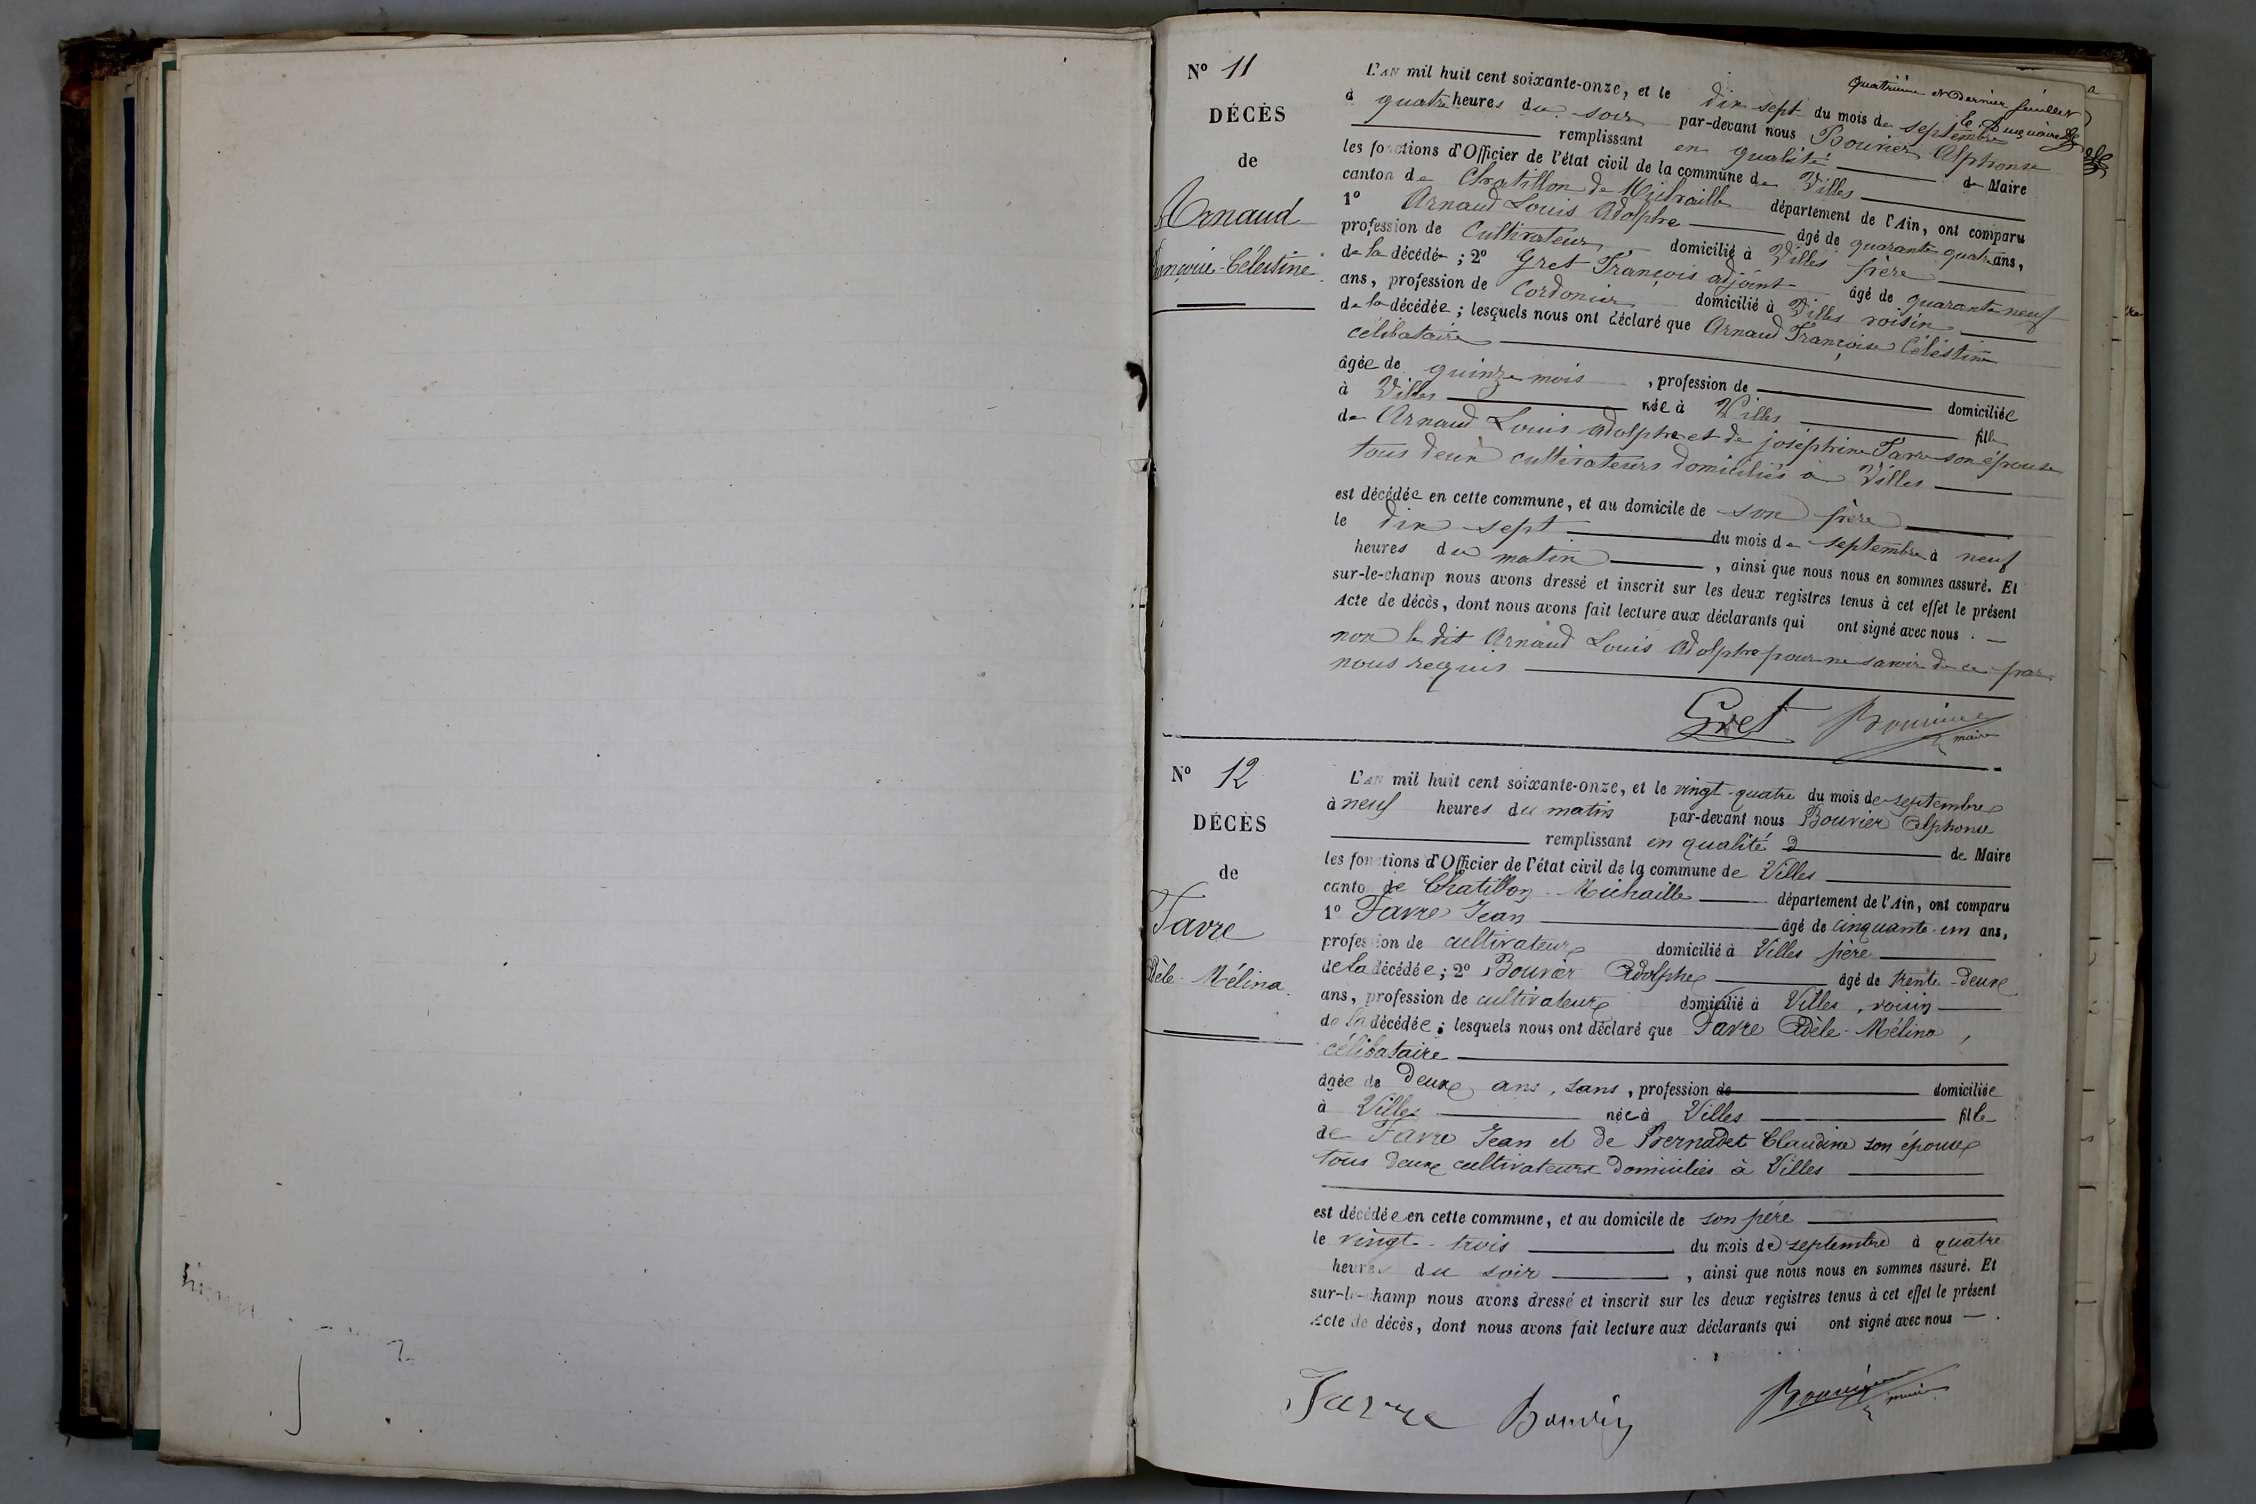 quatrième et dernier feuillet
N° 11
DÉCÈS
de
Arnaud
Françoise-Célestine
L'AN mil huit cent soixante-onze, et le dix sept du mois de septembre
à quatre heures du soir par-devant nous Bouvier Alphonse
remplissant en qualité de Maire
les fonctions d'Officier de l'état civil de la commune de Villes
canton de Chatillon de Michaille département de l'Ain, ont comparu
1° Arnaud Louis Adolphe âgé de quarante quatre ans,
profession de Cultivateur domicilié à Villes père
de la décédée ; 2° Gret François adjoint âgé de quarante neuf
ans, profession de Cordonier domicilié à Villes voisin
de la décédée ; lesquels nous ont déclaré que Arnaud Françoise Célestine
célibataire
âgée de quinze mois , profession de domiciliée
à Villes née à Villes fille
de Arnaud Louis Adolphe et de joséphine Favre son épouse
tous deux cultivateurs domiciliés à Villes
est décédée en cette commune, et au domicile de son père
le dix sept du mois de septembre à neuf
heures du matin , ainsi que nous nous en sommes assuré. Et
sur-le-champ nous avons dressé et inscrit sur les deux registres tenus à cet effet le présent
Acte de décès, dont nous avons fait lecture aux déclarants qui ont signé avec nous . —
non le dit Arnaud Louis Adolphe pour ne savoir de ce par
nous requis
Gret Bouvier
maire
N° 12
DÉCÈS
de
Favre
Adèle-Mélina.
L'AN mil huit cent soixante-onze, et le vingt-quatre du mois de septembre
à neuf heures du matin par-devant nous Bouvier Alphonse
remplissant en qualité d de Maire
les fonctions d'Officier de l'état civil de la commune de Villes
canto de Chatillon-Michaille département de l'Ain, ont comparu
1° Favre Jean âgé de cinquante-un ans,
profession de cultivateur domicilié à Villes père
de la décédée ; 2° Bouvier Adolphe âgé de trente-deux
ans, profession de cultivateur domicilié à Villes, voisin
de la décédée ; lesquels nous ont déclaré que Favre Adèle-Mélina,
célibataire
âgée de deux ans, sans , profession de domiciliée
à Villes née à Villes fille
de Favre Jean et de Bernadet Claudine son épouse
tous deux cultivateurs domiciliés à Villes
est décédée en cette commune, et au domicile de son père
le vingt-trois du mois de septembre à quatre
heures du soir , ainsi que nous nous en sommes assuré. Et
sur-le-champ nous avons dressé et inscrit sur les deux registres tenus à cet effet le présent
Acte de décès, dont nous avons fait lecture aux déclarants qui ont signé avec nous — .
Favre Bouvier Bouvier
maire